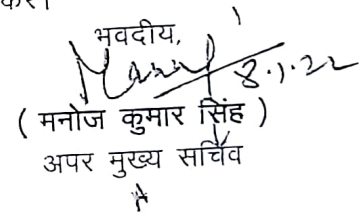 करें।
भवदीय,
8.1.22
( मनोज कुमार सिंह )
अपर मुख्य सचिव